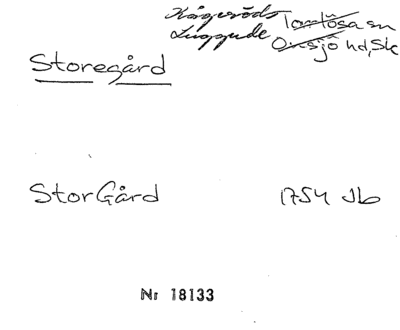 Kågeröds Torrlösa sn
Luggude Onsjö hd, Sk
Storegård
StorGård 1754 Jb
Nr 18133